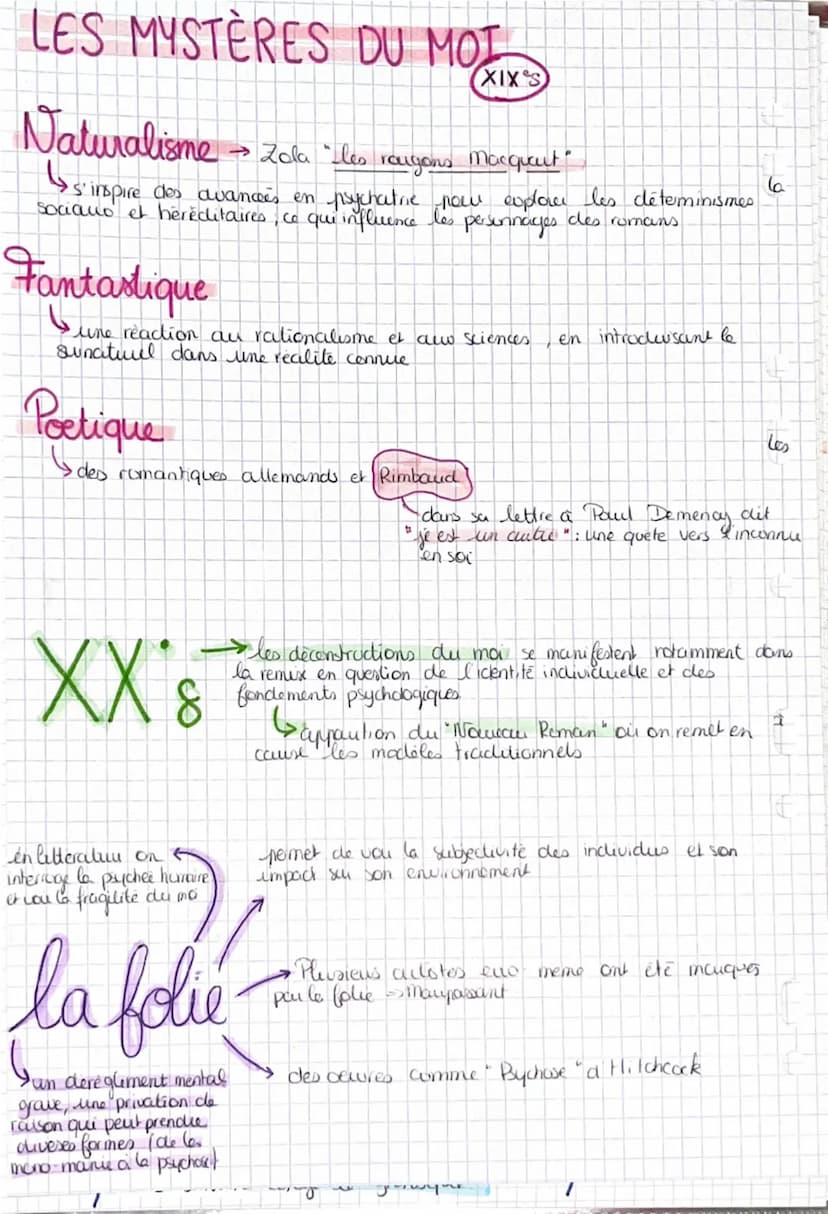 LES MYSTÈRES DU MOI
XIX°s
Naturalisme → Zola "les rougons Macquart"
↳ s'inspire des avancés en psychatrie pour explorer les déterminismes
sociaux et héréditaires, ce qui influence les personnages des romans
la
Fantastique
↳ une réaction au rationalisme et aux sciences, en introduisant le
surnaturel dans une réalité connue
Poetique
les
↳ des romantiques allemands et Rimbaud
dans sa lettre à Paul Demenay dit
"je est un autre" : une quête vers l'inconnu
en soi
XX°s → les déconstructions du moi se manifestent notamment dans
la remix en question de l'identité individuelle et des
fondements psychologiques
↳ apparution du "Nouveau Roman" où on remet en
cause les modèles traditionnels
en litteratuu on
interroge la psychée humaine
et vou la fragilité du moi
permet de voir la subjectivité des individus et son
impact sur son environnement
la folie
→ Plusieurs autotes eux meme ont été marqués
par la folie → Maupassant
des oeuvres comme "Psychose" d'Hitchcock
↳ un dérèglement mental
grave, une privation de
raison qui peut prendre
diverses formes (de la
mono-manie à la psychose)